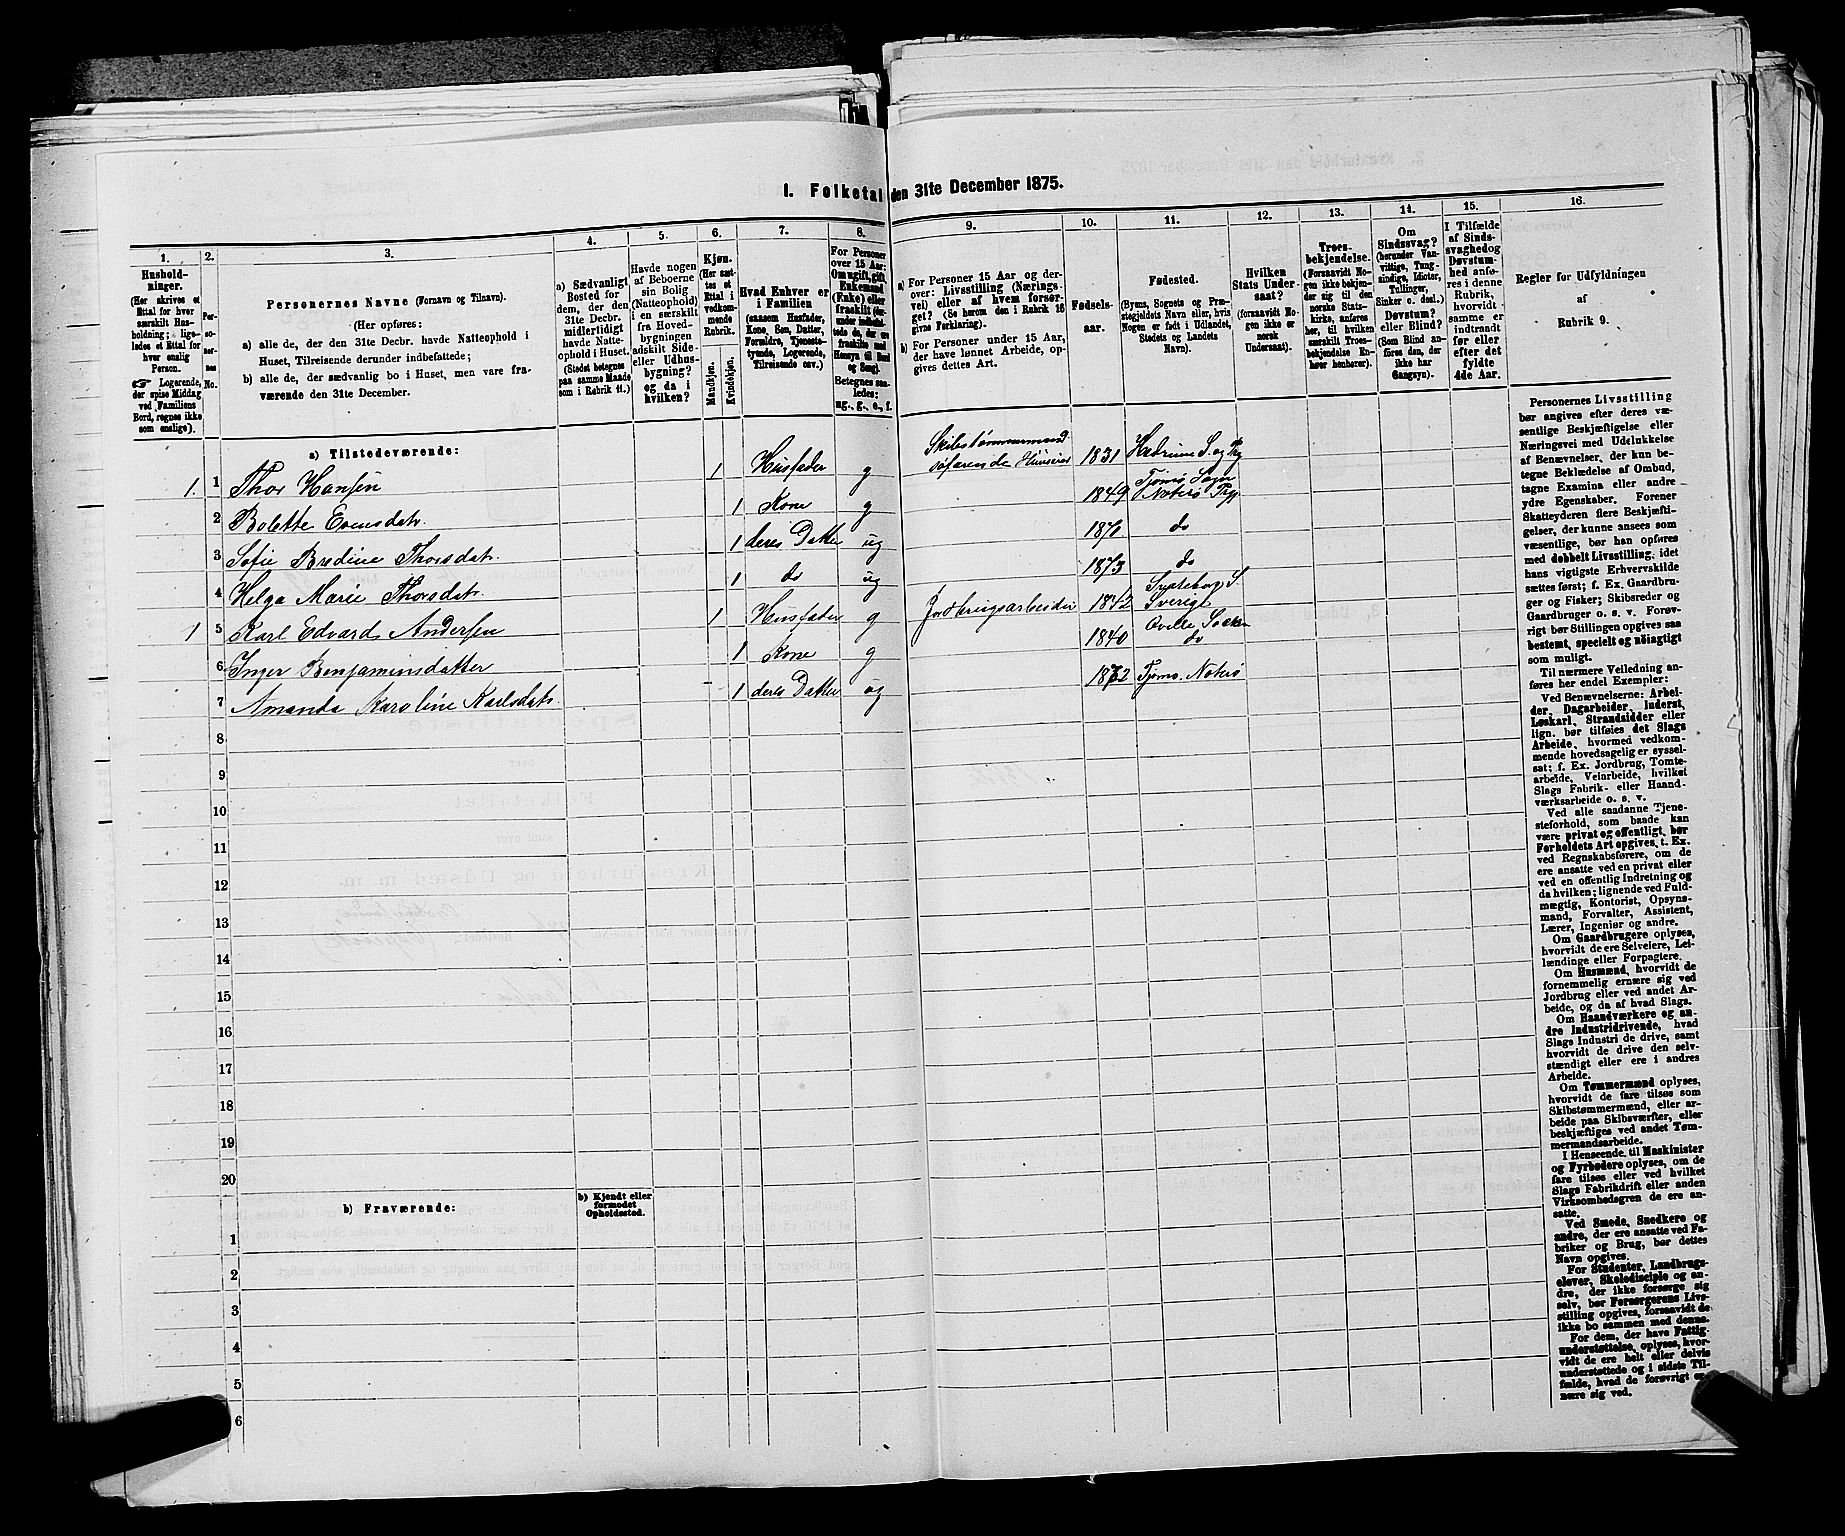 1. Folketal den 31te December 1875.
1.
2.
3.
4.
5.
6.
7.
8.
9.
10.
11.
12.
13.
14.
15.
16.
Hushold-
ninger.
(Her skrives et
Ettal for hver
særskilt Hus-
holdning; lige-
ledes et Ettal for
hver enslig
Person.
☞ Logerende,
der spise Middag
ved Familiens
Bord, regnes ikke
som enslige).
Per-
so-
ner-
nes
No.
Personernes Navne (Fornavn og Tilnavn).
(Her opføres:
a) alle de, der den 31te Decbr. havde Natteophold i
Huset, Tilreisende derunder indbefattede;
b) alle de, der sædvanlig bo i Huset, men vare fra-
værende den 31te December.
a) Sædvanligt
Bosted for
dem, der den
31te Decbr.
midlertidigt
havde Natte-
ophold i Huset.
(Stedet betegnes
paa samme Maade
som i Rubrik 11.)
Havde nogen
af Beboerne
sin Bolig
(Natteophold)
i en særskilt
fra Hoved-
bygningen
adskilt Side-
eller Udhus-
bygning?
og da i
hvilken?
Kjøn.
(Her sæt-
tes et
Ettal i
vedkom-
mende
Rubrik.
Mandkjøn.
Kvindekjøn.
Hvad Enhver er
i Familien
(saasom Husfader,
Kone, Søn, Datter,
Forældre, Tjeneste-
tyende, Logerende,
Tilreisende osv.)
For Personer
over 15 Aar:
Om ugift, gift,
Enkemand
(Enke) eller
fraskilt (der-
under indbefat-
tede de, der ere
fraskilte med
Hensyn til Bord
og Seng).
Betegnes saa-
ledes:
ug., g., e., f.
a) For Personer 15 Aar og der-
over: Livsstilling (Nærings-
vei) eller af hvem forsør-
get? (Se herom den i Rubrik 16
givne Forklaring).
b) For Personer under 15 Aar,
der have lønnet Arbeide, op-
gives dettes Art.
Fødsels-
aar.
Fødested.
(Byens, Sognets og Præ-
stegjeldets Navn eller, hvis
Nogen er født i Udlandet,
Stedets og Landets
Navn).
Hvilken
Stats Under-
saat?
(foraavidt No-
gen ikke er
norsk
Undersaat).
Troes-
bekjendelse.
(Foraavidt No-
gen ikke bekjen-
der sig til den
norske Stats-
kirke, anføres
her, til hvilken
særskilt Troes-
bekjendelse En-
hver henhører).
Om
Sindssvag?
(herunder Van-
vittige, Tung-
sindige, Idioter,
Tullinger,
Sinker o. desl.)
Døvstum?
eller Blind?
(Som Blind an-
føres den, der
ikke har
Gangsyn).
I Tilfælde
af Sinds-
svaghed og
Døvstum-
hed anfø-
res i denne
Rubrik,
hvorvidt
samme er
indtraadt
før eller
efter det
fyldte
4de Aar.
Regler for Udfyldningen
af
Rubrik 9.
a) Tilstedeværende:
1. 1 Thor Hansen 1 Husfader g Skibstømmermand søfarende 1831
2 Bolette Evensdatr. 1 Kone g 1849 Tjømø Sogn Nøterø Prg.
3 Sofie Bredine Thorsdatr. 1 deres Datter ug 1870 do
4 Helga Marie Thorsdatr. 1 do ug 1873 do
1 5 Karl Edvard Andersen 1 Husfader g Jordbrugsarbeider 1842 Sverige
6 Inger Benjaminsdatter 1 Kone g 1840 do
7 Amanda Karoline Karlsdatr. 1 deres Datter ug 1872 Tjømø. Nøterø
8
9
10
11
12
13
14
15
16
17
18
19
20
b) Fraværende:
b) Kjendt eller
formodet
Opholdssted.
1
2
3
4
5
6
Personernes Livsstilling
bør angives efter deres væ-
sentlige Beskjæftigelse eller
Næringsvei med Udelukkelse
af Benævnelser, der kun be-
tegne Beklædelse af Ombud,
tagne Examina eller andre
ydre Egenskaber. Forener
Skatteyderen flere Beskjæfti-
gelser, der kunne ansees som
væsentlige, bør han opføres
med dobbelt Livsstilling, idet
hans vigtigste Erhvervskilde
sættes først; f. Ex. Gaardbru-
ger og Fisker; Skibsreder og
Gaardbruger o. s. v. Forøv-
rigt bør Stillingen opgives saa
bestemt, specielt og nøiagtigt
som muligt.
Til nærmere Veiledning an-
føres her endel Exempler:
Ved Benævnelserne: Arbei-
der, Dagarbeider, Inderst,
Løskarl, Strandsidder eller
lign. bør tilføies det Slags
Arbeide, hvormed vedkom-
mende hovedsagelig er syssel-
sat; f. Ex. Jordbrug, Tomte-
arbeide, Veiarbeide, hvilket
Slags Fabrik- eller Haand-
værksarbeide o. s. v.
Ved alle saadanne Tjene-
steforhold, som baade kan
være privat og offentligt, bør
Forholdets Art opgives, t. Ex.
ved Regnskabsførere, om de
ere ansatte ved en privat eller
ved en offentlig Indretning og
da hvilken; lignende ved Fuld-
mægtig, Kontorist, Opsyns-
mand, Forvalter, Assistent,
Lærer, Ingeniør og andre.
Om Gaardbrugere oplyses,
hvorvidt de ere Selveiere, Lei-
lændinge eller Forpagtere.
Om Husmænd, hvorvidt de
fornemmelig ernære sig ved
Jordbrug eller ved andet Ar-
beide, og da af hvad Slags.
Om Haandværkere og an-
dre Industridrivende, hvad
Slags Industri de drive, samt
hvorvidt de drive den selv-
stændigt eller ere i andres
Arbeide.
Om Tømmermænd oplyses,
hvorvidt de fare tilsøs som
Skibstømmermænd, eller ar-
beide paa Skibsværfter, eller
beskjæftiges ved andet Tøm-
mermandsarbeide.
I Henseende til Maskinister
og Fyrbødere oplyses, om de
fare tilsøs eller ved hvilket
Slags Fabrikdrift eller anden
Virksomhedsgren de ere an-
satte.
Ved Smede, Snedkere og
andre, der ere ansatte ved Fa-
briker og Brug, bør dettes
Navn opgives.
For Studenter, Landbrugs-
elever, Skoledisciple og an-
dre, der ikke forsørge sig
selv, bør Forsørgerens Livs-
stilling opgives, forsaavidt de
ikke bo sammen med denne.
For dem, der have Fattig-
understøttelse, oplyses, hvor-
vidt de ere helt eller delvis
understøttede og i sidste Til-
fælde, hvad de forøvrigt er-
nære sig ved.